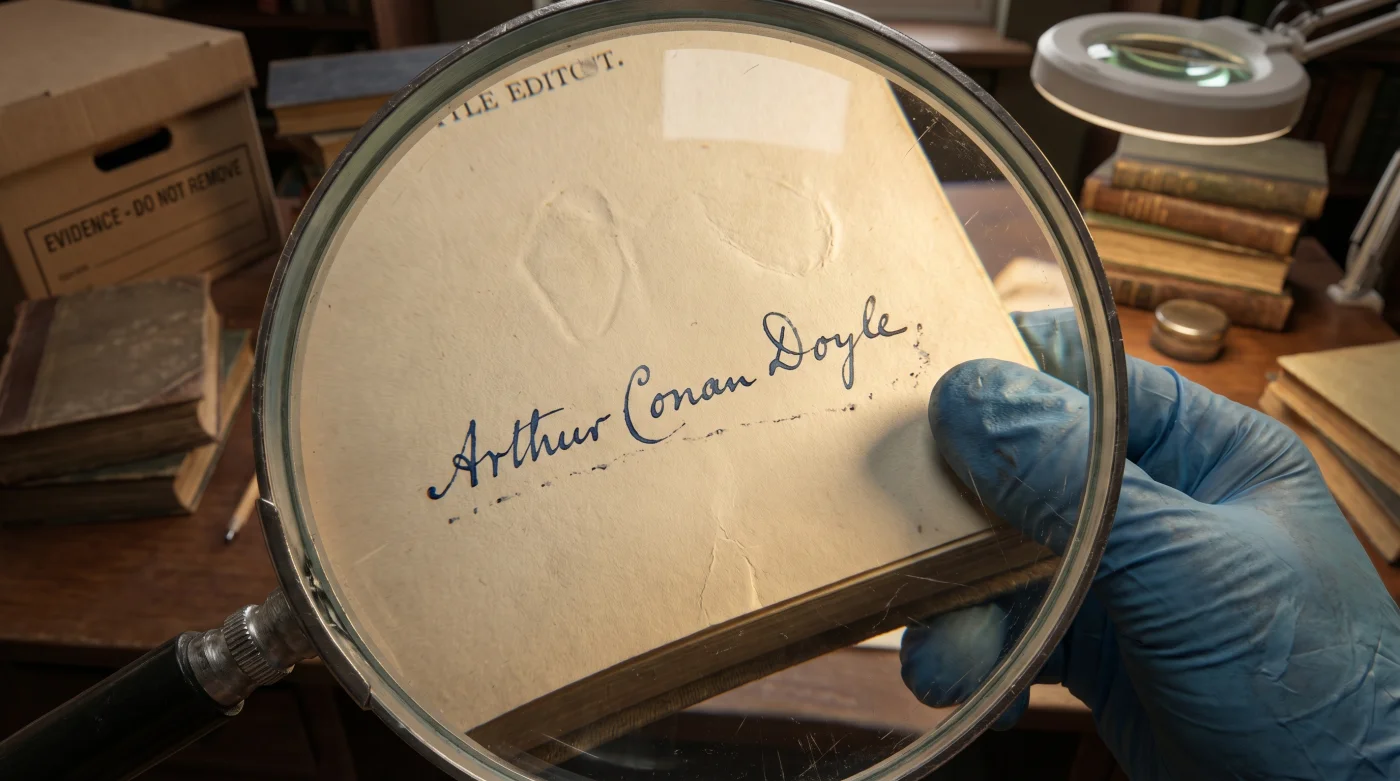 EVIDENCE - DO NOT REMOVE
Arthur Conan Doyle